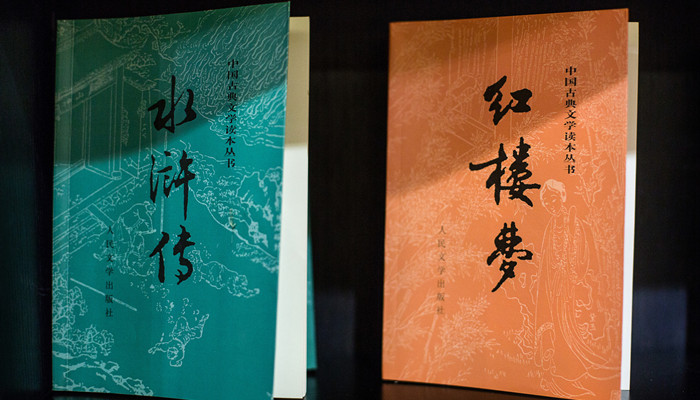 水浒传
中国古典文学读本丛书
人民文学出版社
红楼梦
中国古典文学读本丛书
人民文学出版社